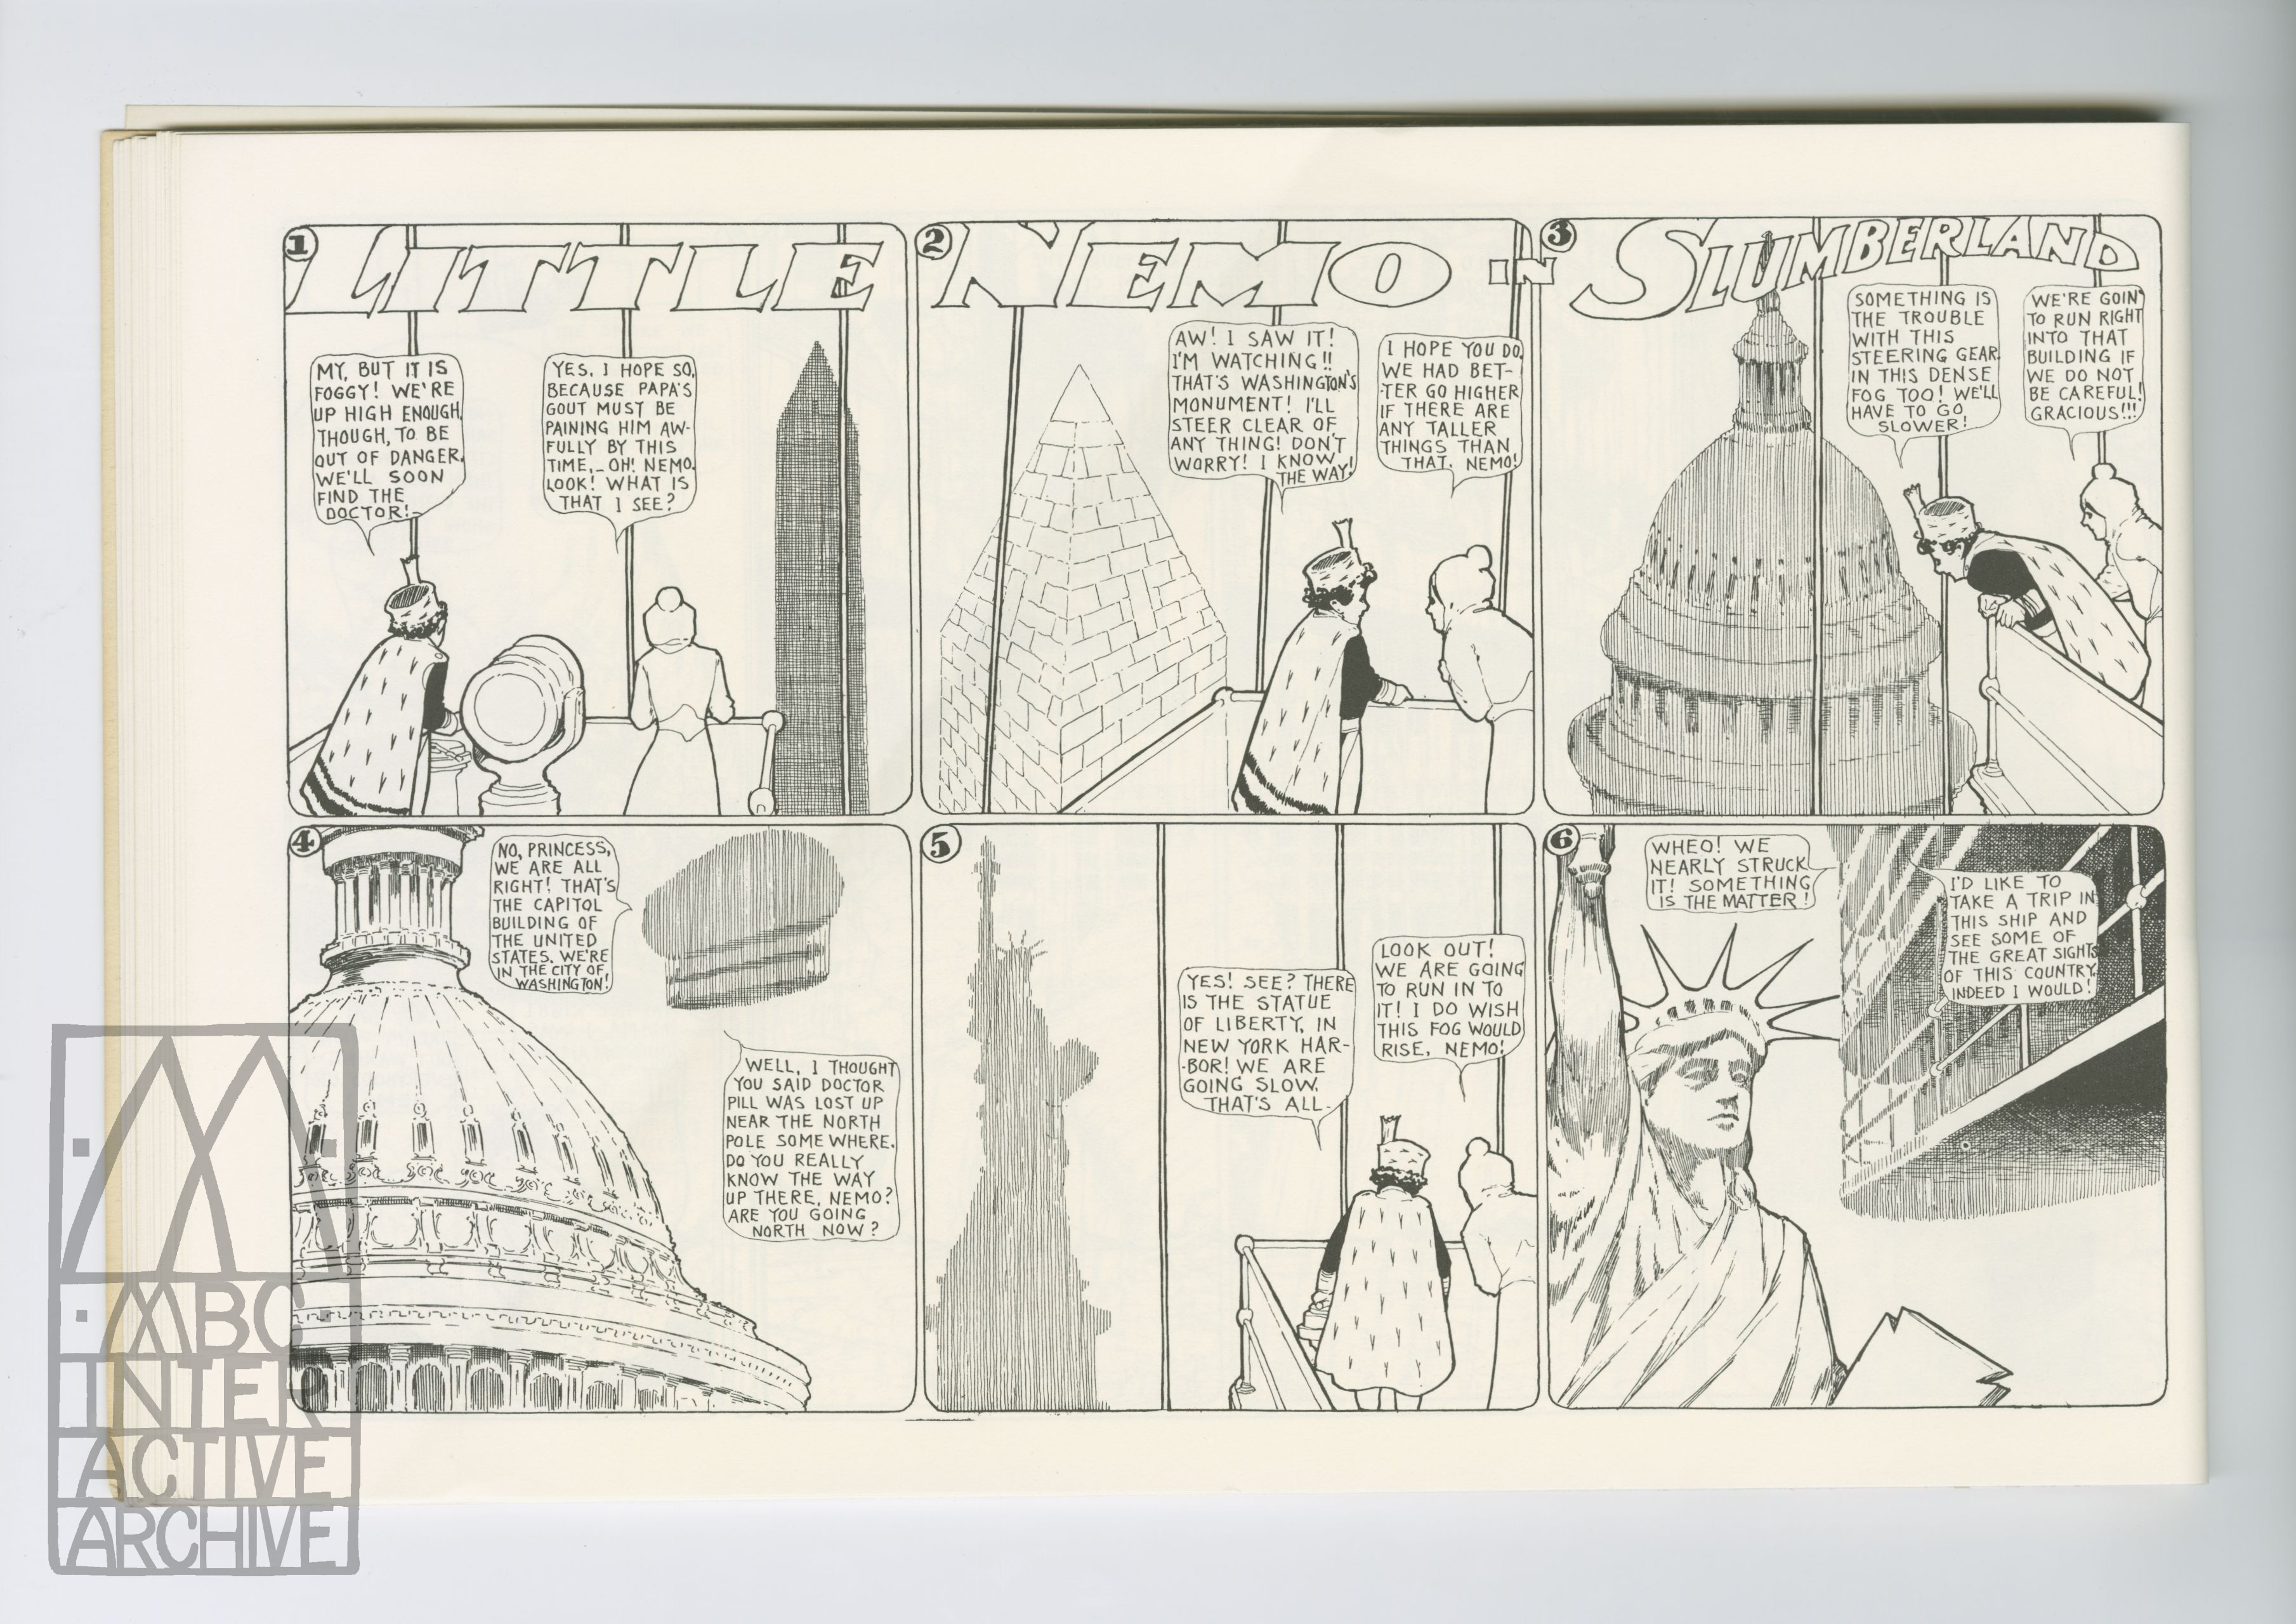 1
LITTLE
2
NEMO IN
3
SLUMBERLAND
MY, BUT IT IS
FOGGY! WE'RE
UP HIGH ENOUGH,
THOUGH, TO BE
OUT OF DANGER.
WE'LL SOON
FIND THE
DOCTOR!-
YES, I HOPE SO,
BECAUSE PAPA'S
GOUT MUST BE
PAINING HIM AW-
FULLY BY THIS
TIME,- OH! NEMO,
LOOK! WHAT IS
THAT I SEE?
AW! I SAW IT!
I'M WATCHING!!
THAT'S WASHINGTON'S
MONUMENT! I'LL
STEER CLEAR OF
ANY THING! DON'T
WORRY! I KNOW
THE WAY!
I HOPE YOU DO.
WE HAD BET-
-TER GO HIGHER
IF THERE ARE
ANY TALLER
THINGS THAN
THAT, NEMO!
SOMETHING IS
THE TROUBLE
WITH THIS
STEERING GEAR.
IN THIS DENSE
FOG TOO! WE'LL
HAVE TO GO
SLOWER!
WE'RE GOIN'
TO RUN RIGHT
INTO THAT
BUILDING IF
WE DO NOT
BE CAREFUL!
GRACIOUS!!!
4
NO, PRINCESS,
WE ARE ALL
RIGHT! THAT'S
THE CAPITOL
BUILDING OF
THE UNITED
STATES. WE'RE
IN THE CITY OF
WASHINGTON!
WELL, I THOUGHT
YOU SAID DOCTOR
PILL WAS LOST UP
NEAR THE NORTH
POLE SOME WHERE.
DO YOU REALLY
KNOW THE WAY
UP THERE, NEMO?
ARE YOU GOING
NORTH NOW?
5
YES! SEE? THERE
IS THE STATUE
OF LIBERTY, IN
NEW YORK HAR-
-BOR! WE ARE
GOING SLOW.
THAT'S ALL-
LOOK OUT!
WE ARE GOING
TO RUN IN TO
IT! I DO WISH
THIS FOG WOULD
RISE, NEMO!
6
WHEO! WE
NEARLY STRUCK
IT! SOMETHING
IS THE MATTER!
I'D LIKE TO
TAKE A TRIP IN
THIS SHIP AND
SEE SOME OF
THE GREAT SIGHTS
OF THIS COUNTRY.
INDEED I WOULD!
MBC
INTER
ACTIVE
ARCHIVE